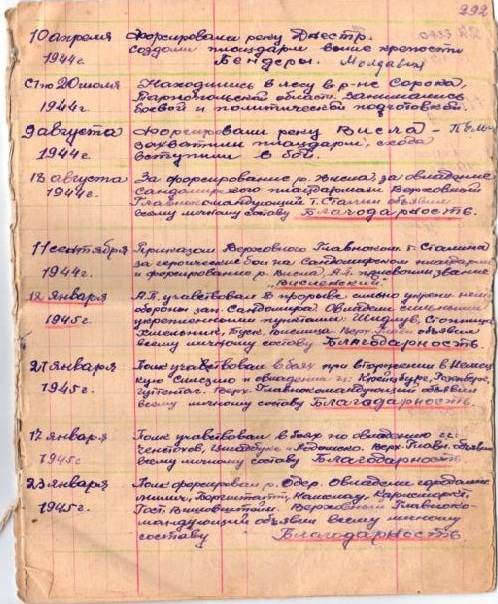 292
10 апреля Форсировали реку Днестр.
1944 г. создали плацдарм выше крепости
Бендеры. Молдавия
С 1 по 20 июля Находились в лесу в р-не Сорока,
1944 г. Тарнопольской области. Занимались
боевой и политической подготовкой.
9 августа Форсировали реку Висла –
1944 г. захватили плацдарм,
вступили в бой.
18 августа За форсирование р. Висла, за овладение
1944 г. Сандомирского плацдармом Верховный
Главнокомандующий т. Сталин объявил
всему личному составу Благодарность.
11 сентября Приказом Верховного Главноком. т. Сталина
1944 г. за героические бои на Сандомирском плацдарме
и форсирование р. Висла, А.П. присвоили звание
„Висленский"
12 января А.П. участвовал в прорыве сильно укреп. нем.
1945 г. обороны зап. Сандомира. Овладели сильными
укрепленными пунктами: Шидлув, Стопница
Хмельник, Буск, Вислица Верх. Глав. объявил
всему личному составу Благодарность.
21 января Полк участвовал в боях при вторжении в Немец
1945 г. кую Силезию и овладении г. Крейцбург, Розенберг,
Гутентаг. Верх. Главнокомандующий объявил
всему личному составу Благодарность.
17 января Полк участвовал в боях по овладению г.г.
1945 г. Ченстохов, и Радомско. Верх. Главн. объявил
всему личному составу Благодарность.
23 января Полк форсировал р. Одер. Овладели городами
1945 г. Намслау, Карлсмаркт,
Верховный Главноко-
мандующий объявил всему личному
составу Благодарность.